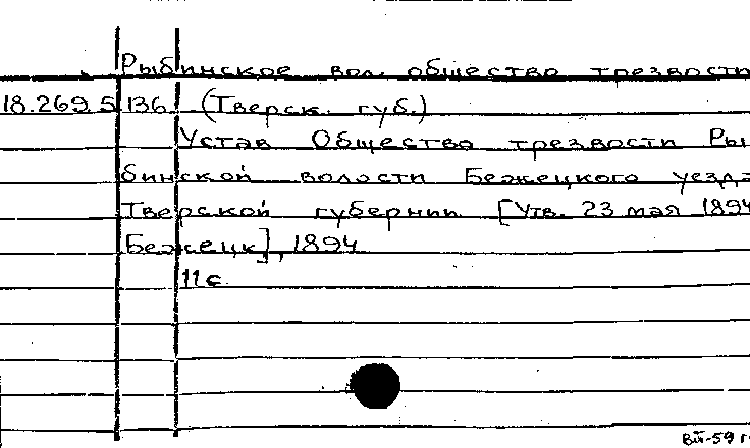 Рыбинское вол. общество трезвости
18.269.5.136. (Тверск. губ.)
Устав Общества трезвости Ры
бинской волости Бежецкого уезда
Тверской губернии. [Утв. 23 мая 1894
Бежецк], 1894
11 с.
ВЙ-59 г